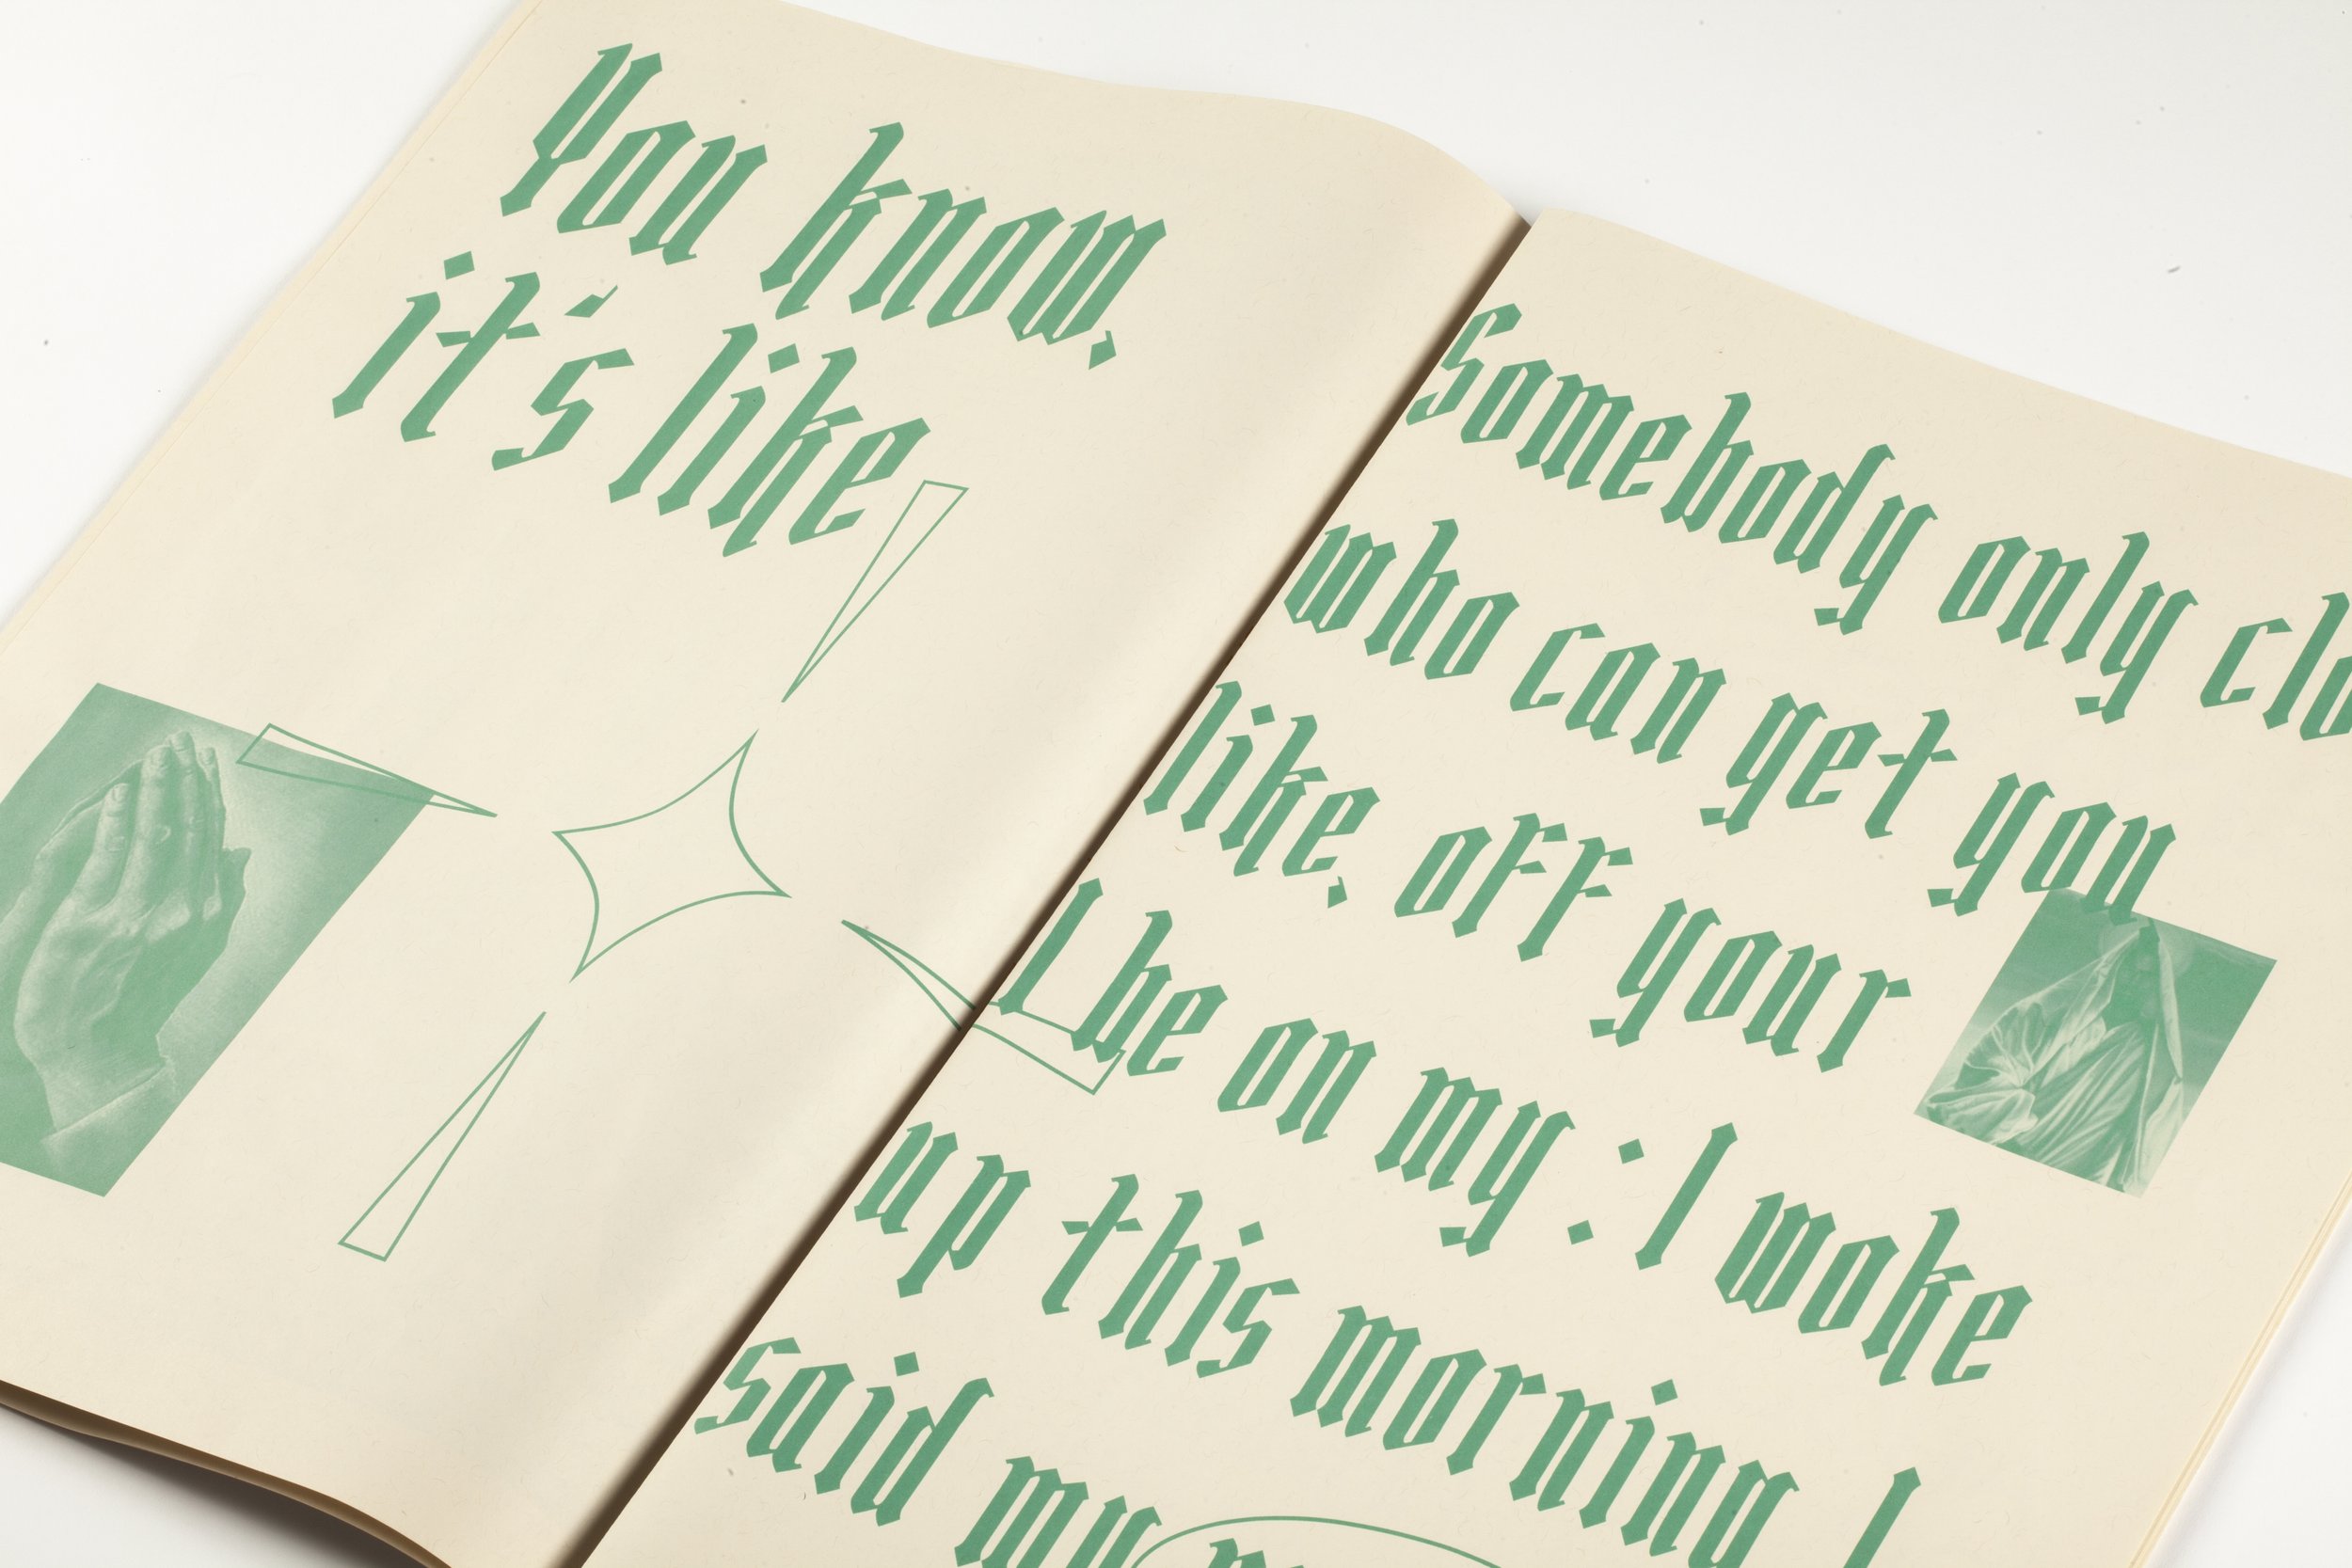 You know,
it's like
Somebody only clo
who can get you
like, off your
I be on my : I woke
up this morning I
said my